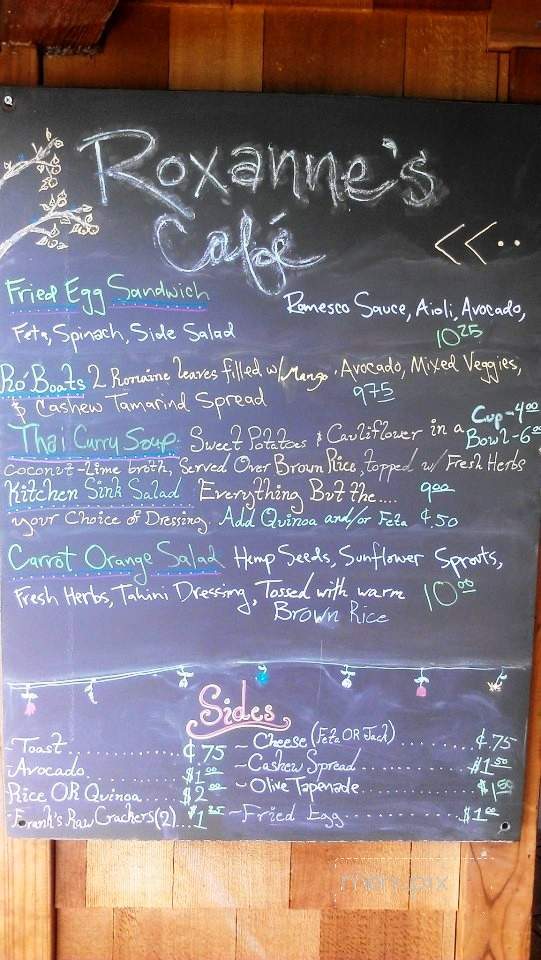 Roxanne's
Café
<<··
Fried Egg Sandwich Romesco Sauce, Aioli, Avocado,
Feta, Spinach, Side Salad 10 25
Ro' Boats 2 Romaine leaves filled w/ Mango. Avocado, Mixed Veggies,
& Cashew Tamarind Spread 9 75
Thai Curry Soup Sweet Potatoes & Cauliflower in a Cup-4 00
coconut-lime broth, Served Over Brown Rice, topped w/ Fresh Herbs Bowl-6 00
Kitchen Sink Salad Everything But the.... 9 00
your Choice of Dressing. Add Quinoa and/or Feta ¢.50
Carrot Orange Salad Hemp Seeds, Sunflower Sprouts,
Fresh Herbs, Tahini Dressing, Tossed with warm 10 00
Brown Rice
Sides
~Toast........... ¢.75
Avocado........... $1 00
Rice OR Quinoa... $2 00
~Frank's Raw Crackers(2)... $1 25
~Cheese (Feta OR Jack)....... ¢.75
~Cashew Spread........ $1 50
~Olive Tapenade........ $1
~Fried Egg.......... $1 00
menupix